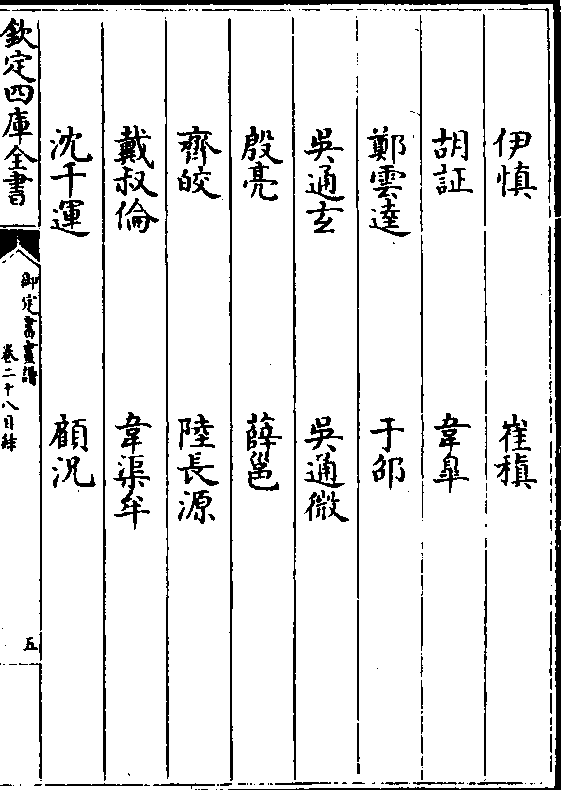 伊慎　崔稹
胡証　韋臯
鄭雲逵　于邵
吳通玄　吳通微
殷亮　薛邕
齊皎　陸長源
戴叔倫　韋渠牟
沈千運　顧況
欽定四庫全書
御定書畫譜
卷二十八目録
五